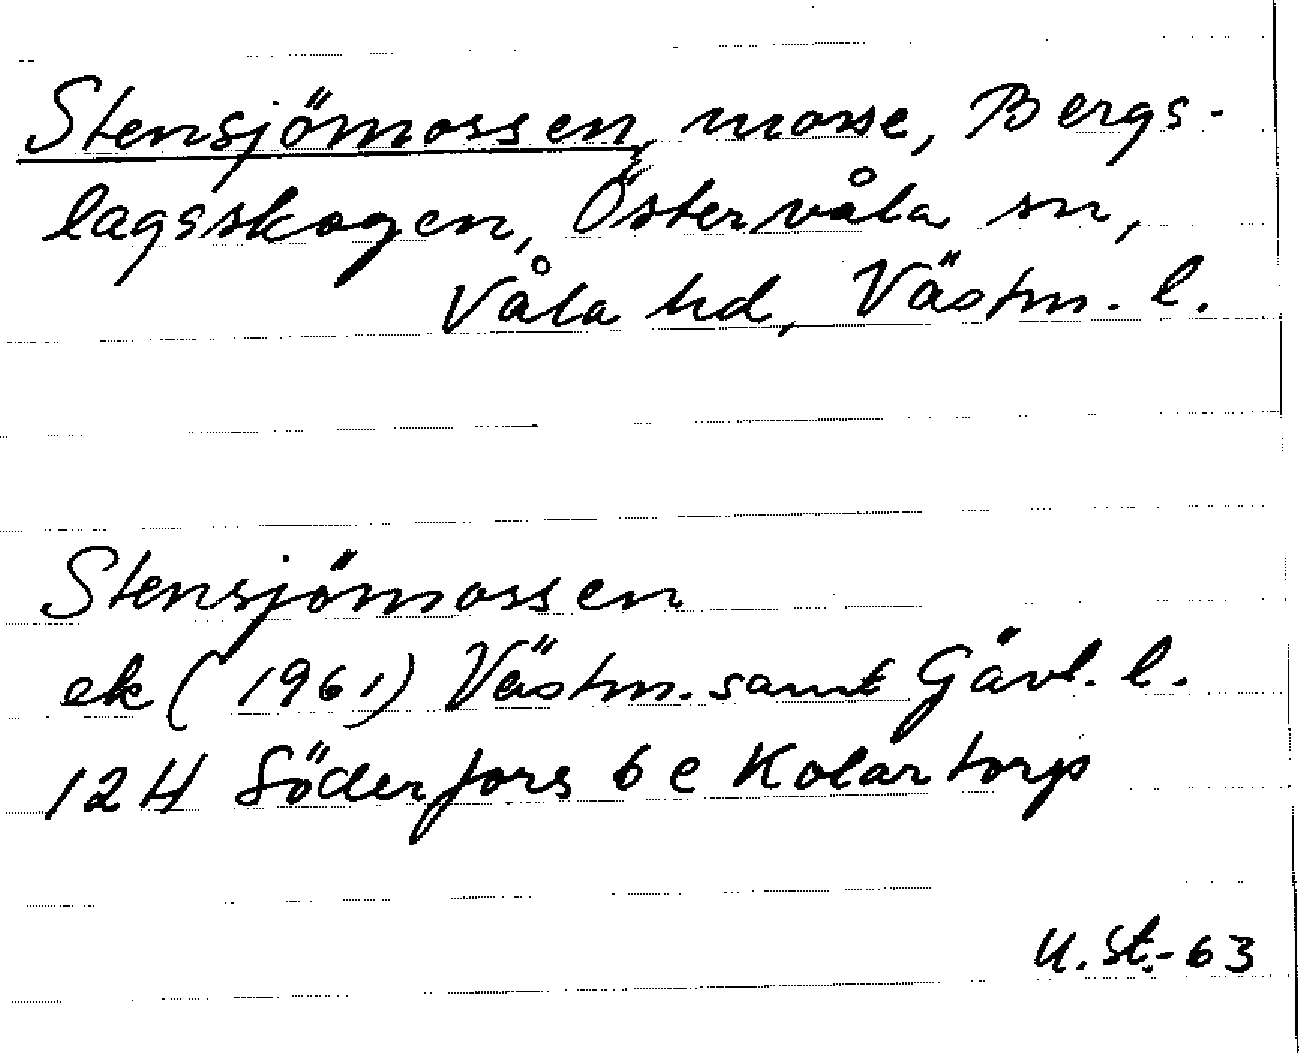 Stensjömossen, mosse, Bergs-
lagsskogen, Östervåla sn,
Våla hd, Västm. l.
Stensjömossen
ek (1961) Västm. samt Gävl. l.
12H Söderfors 6 e Kolartorp
U. St.-63